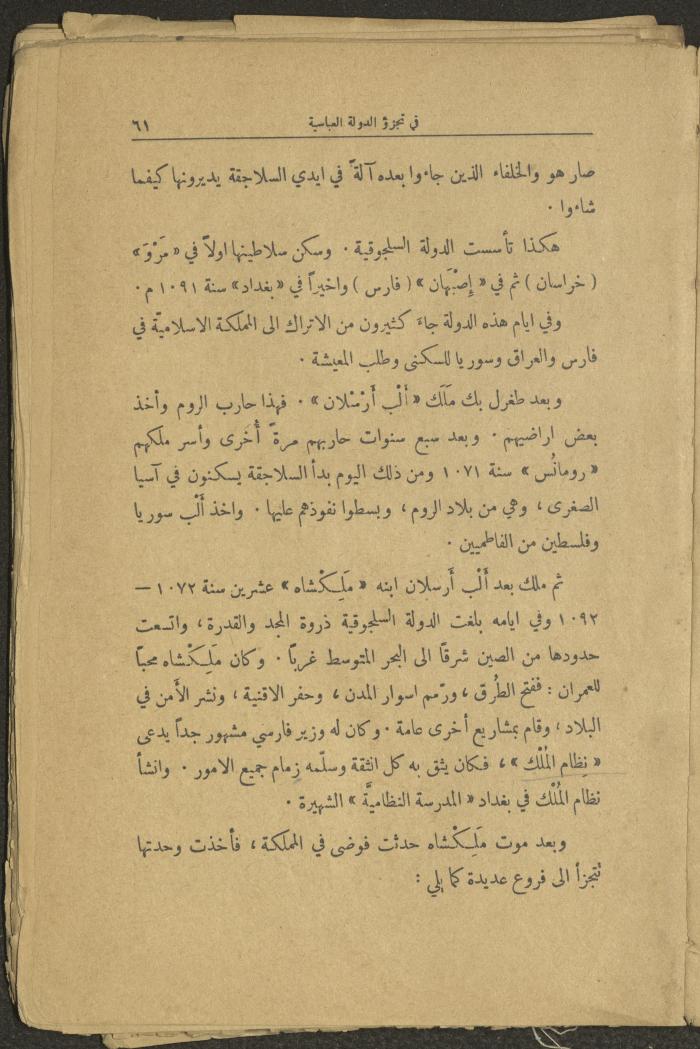 في تجزؤ الدولة العباسية ٦١
صار هو والخلفاء الذين جاءوا بعده آلةً في ايدي السلاجقة يديرونها كيفما
شاءوا ٠
هكذا تأسست الدولة السلجوقية ٠ وسكن سلاطينها اولاً في «مَرْوَ»
( خراسان ) ثم في « إِصْبَهان » ( فارس ) واخيراً في «بغداد» سنة ١٠٩١ م ٠
وفي ايام هذه الدولة جاءَ كثيرون من الاتراك الى المملكة الاسلاميّة في
فارس والعراق وسوريا للسكنى وطلب المعيشة ٠
وبعد طغرل بك مَلَك «أَلْب أَرْسْلان» ٠ فهذا حارب الروم وأخذ
بعض اراضيهم ٠ وبعد سبع سنوات حاربهم مرةً أُخرى وأسر ملكهم
«رومانُس» سنة ١٠٧١ ومن ذلك اليوم بدأ السلاجقة يسكنون في آسيا
الصغرى ، وهي من بلاد الروم ، وبسطوا نفوذهم عليها ٠ واخذ أَلْب سوريا
وفلسطين من الفاطميين ٠
ثم ملك بعد أَلْب أَرسلان ابنه «مَلِكْشاه» عشرين سنة ١٠٧٢ —
١٠٩٢ وفي ايامه بلغت الدولة السلجوقية ذروة المجد والقدرة ، واتسعت
حدودها من الصين شرقاً الى البحر المتوسط غرباً ٠ وكان مَلِكْشاه محباً
للعمران : ففتح الطُرق ، ورّمم اسوار المدن ، وحفر الاقنية ، ونشر الأَمن في
البلاد ، وقام بمشاريع أخرى عامة ٠ وكان له وزير فارسي مشهور جداً يدعى
« نِظام المُلْك » ، فكان يثق به كل الثقة وسلّمه زمام جميع الامور ٠ وانشأ
نظام المُلْك في بغداد « المدرسة النظاميَّة » الشهيرة ٠
وبعد موت مَلِكْشاه حدثت فوضى في المملكة ، فأخذت وحدتها
تتجزأ الى فروع عديدة كما يلي :